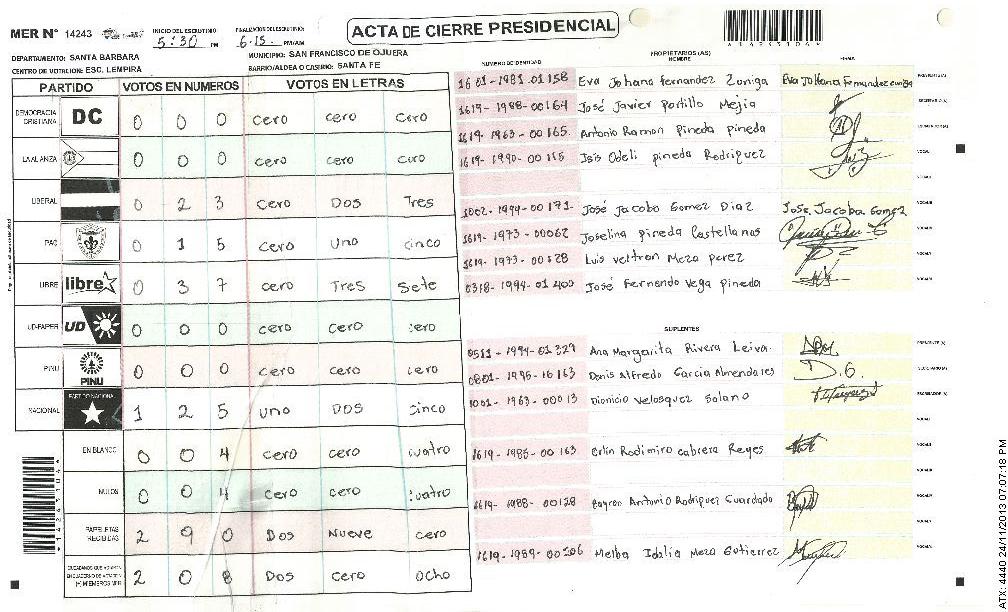 MER Nº 14243
INICIO DEL ESCRUTINIO: 5:30 PM
FINALIZACION DE ESCRUTINIO: 6:15 PM/AM
ACTA DE CIERRE PRESIDENCIAL
DEPARTAMENTO: SANTA BARBARA
MUNICIPIO: SAN FRANCISCO DE OJUERA
CENTRO DE VOTACION: ESC. LEMPIRA
BARRIO/ALDEA O CASERIO: SANTA FE
PARTIDO VOTOS EN NUMEROS VOTOS EN LETRAS
DEMOCRACIA CRISTIANA DC 0 0 0 cero cero cero
LA ALIANZA 0 0 0 cero cero cero
LIBERAL 0 2 3 cero Dos Tres
PAC 0 1 5 cero uno cinco
LIBRE libre 0 3 7 cero Tres Sete
UD-FAPER UD 0 0 0 cero cero cero
PINU PINU 0 0 0 cero cero cero
NACIONAL PARTIDO NACIONAL 1 2 5 uno DOS cinco
EN BLANCO 0 0 4 cero cero cuatro
NULOS 0 0 4 cero cero cuatro
PAPELETAS RECIBIDAS 2 9 0 Dos Nueve cero
CIUDADANOS QUE VOTARON EN CUADERNO DE VOTACION (+) MIEMBROS MER 2 0 8 Dos cero ocho
PROPIETARIOS (AS)
NUMERO DE IDENTIDAD NOMBRE FIRMA
1601-1981-01158 Eva Johana fernandez Zuniga Eva Johana Fernandez zuniga
1619-1988-00164 José Javier Portillo Mejia
1619-1963-00165 Antonio Ramon Pineda pineda
1619-1990-00115 Isis Odeli pineda Rodriguez
1002-1994-00171 José Jacobo Gomez Diaz Jose Jacobo Gomez
1619-1973-00062 Joselina pineda Castellanos
1619-1973-00128 Luis veltran Meza perez
0318-1994-01400 José Fernando Vega pineda
SUPLENTES
0511-1994-01329 Ana Margarita Rivera Leiva
0801-1995-16163 Denis Alfredo Garcia Almendares D.G.
1001-1963-00013 Dionicio Velasquez Solano
1619-1985-00163 Erlin Rodimiro cabrera Reyes
1619-1988-00128 Bayron Antonio Rodriguez Guardado
1619-1989-00206 Melba Idalia Meza Gutierrez
ATX: 4440 24/11/2013 07:07:18 PM